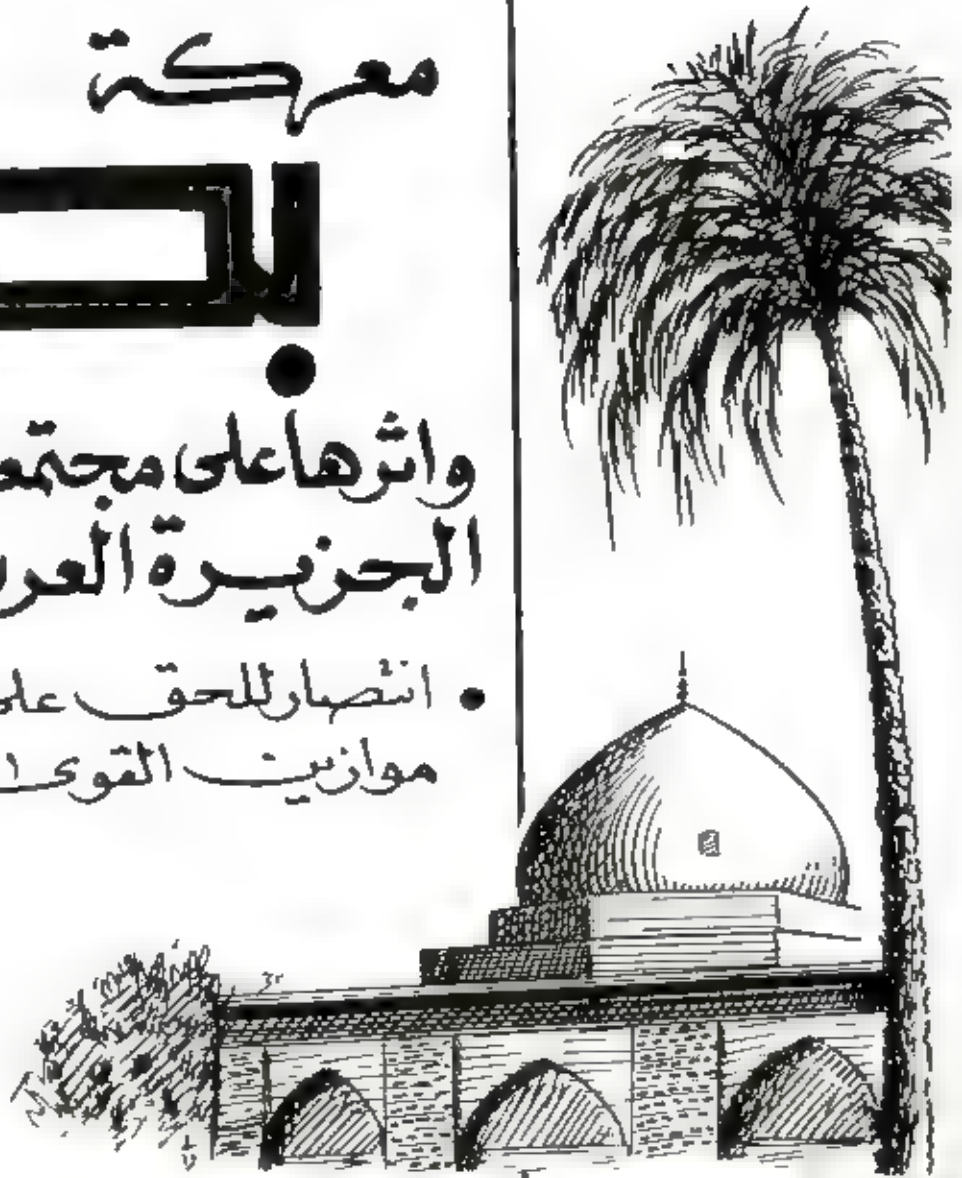 معركة
واثرها على
الجزيرة
• انتصار للحق على
موازين القوى